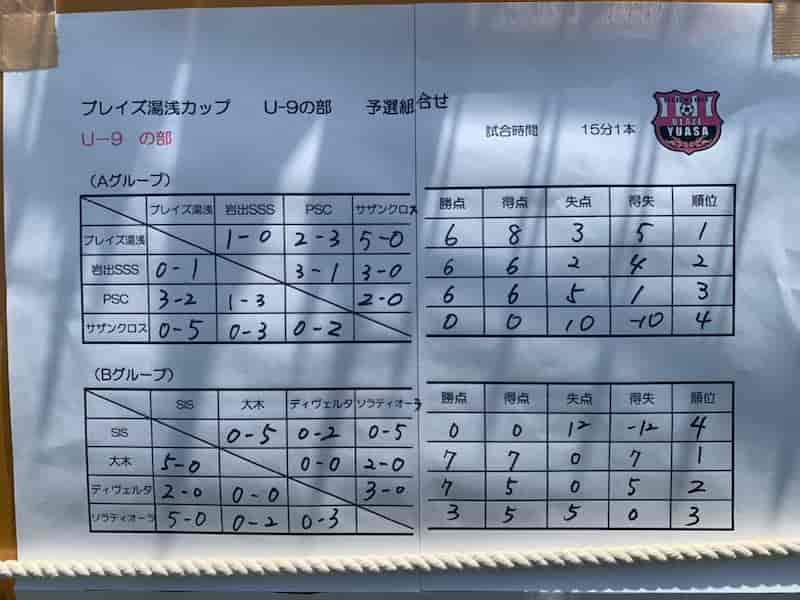 ブレイズ湯浅カップ U-9の部 予選組合せ
U-9 の部
試合時間 15分1本
YUASA
(Aグループ)
ブレイズ湯浅 岩出SSS PSC サザンクロス 勝点 得点 失点 得失 順位
ブレイズ湯浅 1-0 2-3 5-0 6 8 3 5 1
岩出SSS 0-1 3-1 3-0 6 6 2 4 2
PSC 3-2 1-3 2-0 6 6 5 1 3
サザンクロス 0-5 0-3 0-2 0 0 10 -10 4
(Bグループ)
SIS 大木 ディヴェルタ ソラティオーラ 勝点 得点 失点 得失 順位
SIS 0-5 0-2 0-5 0 0 12 -12 4
大木 5-0 0-0 2-0 7 7 0 7 1
ディヴェルタ 2-0 0-0 3-0 7 5 0 5 2
ソラティオーラ 5-0 0-2 0-3 3 5 5 0 3